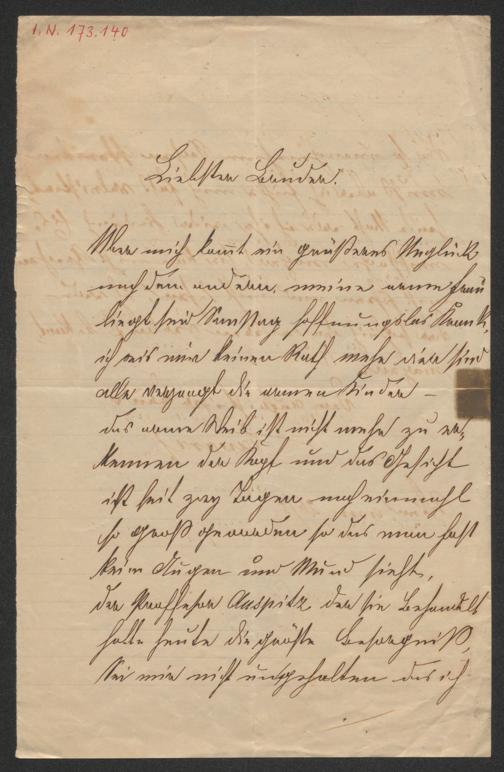 I. N. 173.140
Liebster Bruder!
Uiber mich kommt ein größeres Unglück
nach dem andern, meine arme Frau
liegt seit Samstag hoffnungslos Krank,
ich weis mir keinen Rath mehr wir sind
alle verzagt die armen Kinder –
das arme Weib ist nicht mehr zu er-
kennen der Kopf und das Gesicht
ist seit zwey Tagen noch einmahl
so groß geworden so das man fast
keine Augen und Mund sieht,
der Proffesor Auspitz der sie Behandelt
hatte heute die größte Besorgniß,
Sei mir nicht ungehalten das ich